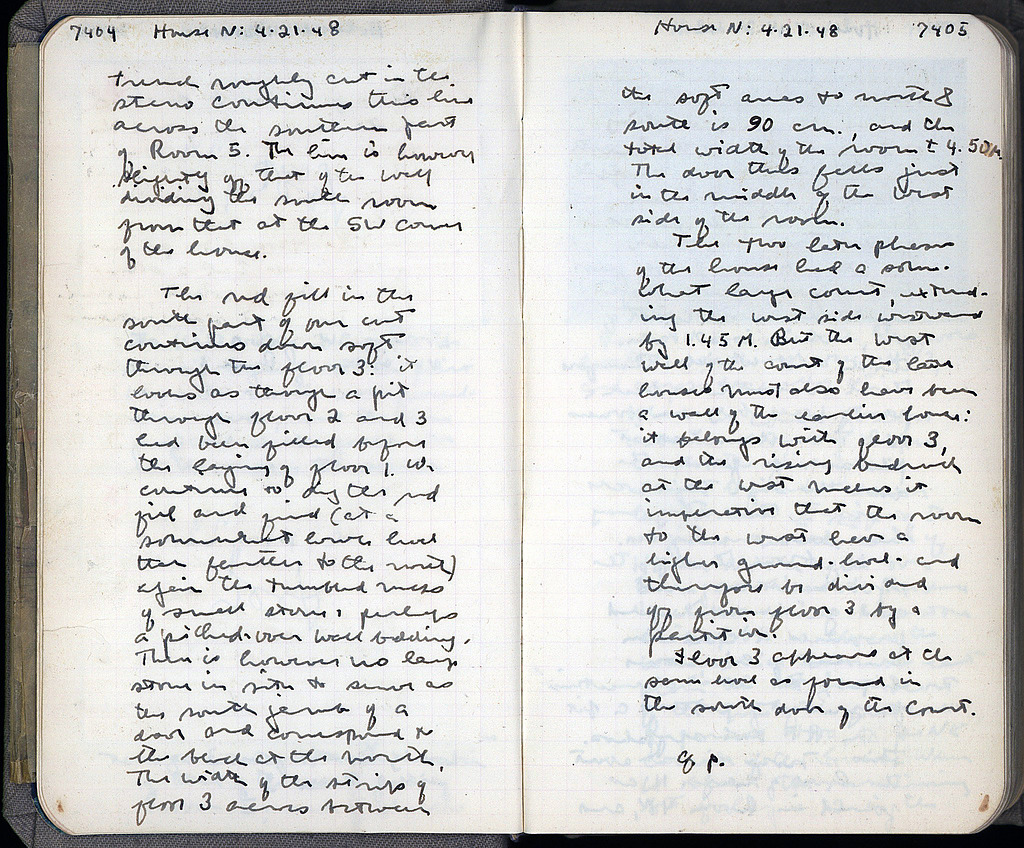 7404 House N: 4.21.48
trench roughly cut in the
stereo continues this line
across the southern part
of Room 5. The line is however
slightly off that of the wall
dividing the south room
from that at the SW corner
of the house.
The red fill in the
south part of our cut
continues down soft
through the floor 3: it
looks as though a pit
through floor 2 and 3
had been filled before
the laying of floor 1. We
continue to dig the red
fill and find (at a
somewhat lower level
than farther to the north)
again the tumbled mess
of small stones, perhaps
a pilled-over wall bedding.
There is however no large
stone in situ to serve as
the south jamb of a
door and correspond to
the block at the north.
The width of the strip of
floor 3 across between
House N: 4.21.48 7405
the soft areas to north &
south is 90 cm., and the
total width of the room ± 4.50 M.
The door thus falls just
in the middle of the west
side of the room.
The two later phases
of the house had a some-
what large court, extend-
ing the west side westward
by 1.45 M. But the west
wall of the court of the later
houses must also have been
a wall of the earlier house:
it belongs with floor 3,
and the rising bedrock
at the west makes it
imperative that the room
to the west have a
higher ground-level and
therefore be divided
off from floor 3 by a
partition.
Floor 3 appeared at the
same level as found in
the south door of the court.
&p.